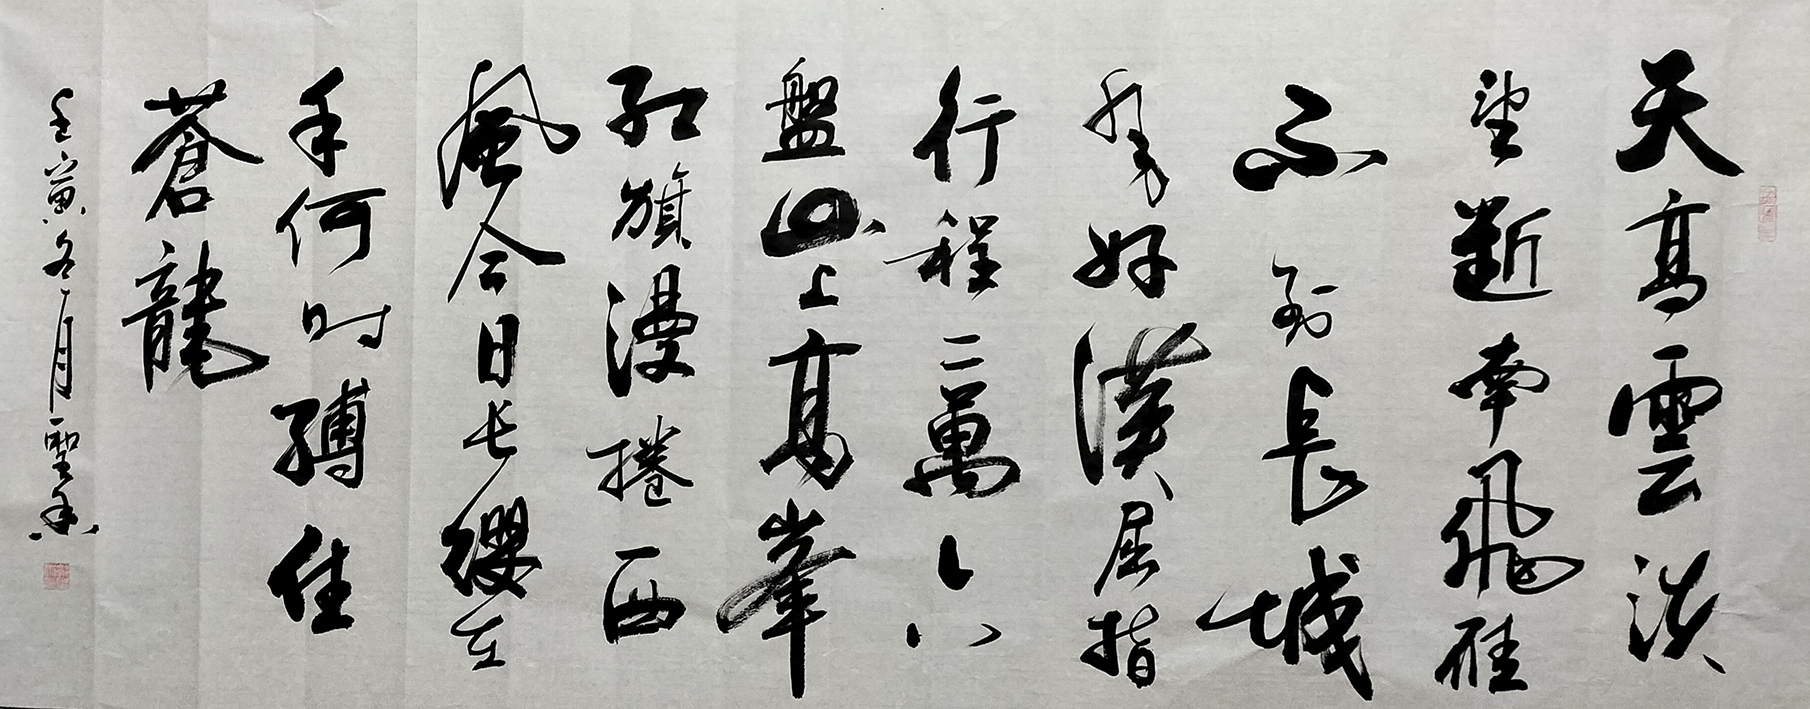 天高雲淡
望斷南飛雁
不到長城
非好漢屈指
行程二萬六
盤山上高峯
红旗漫捲西
風今日长纓在
手何时縛住
蒼龍
壬寅冬月聖